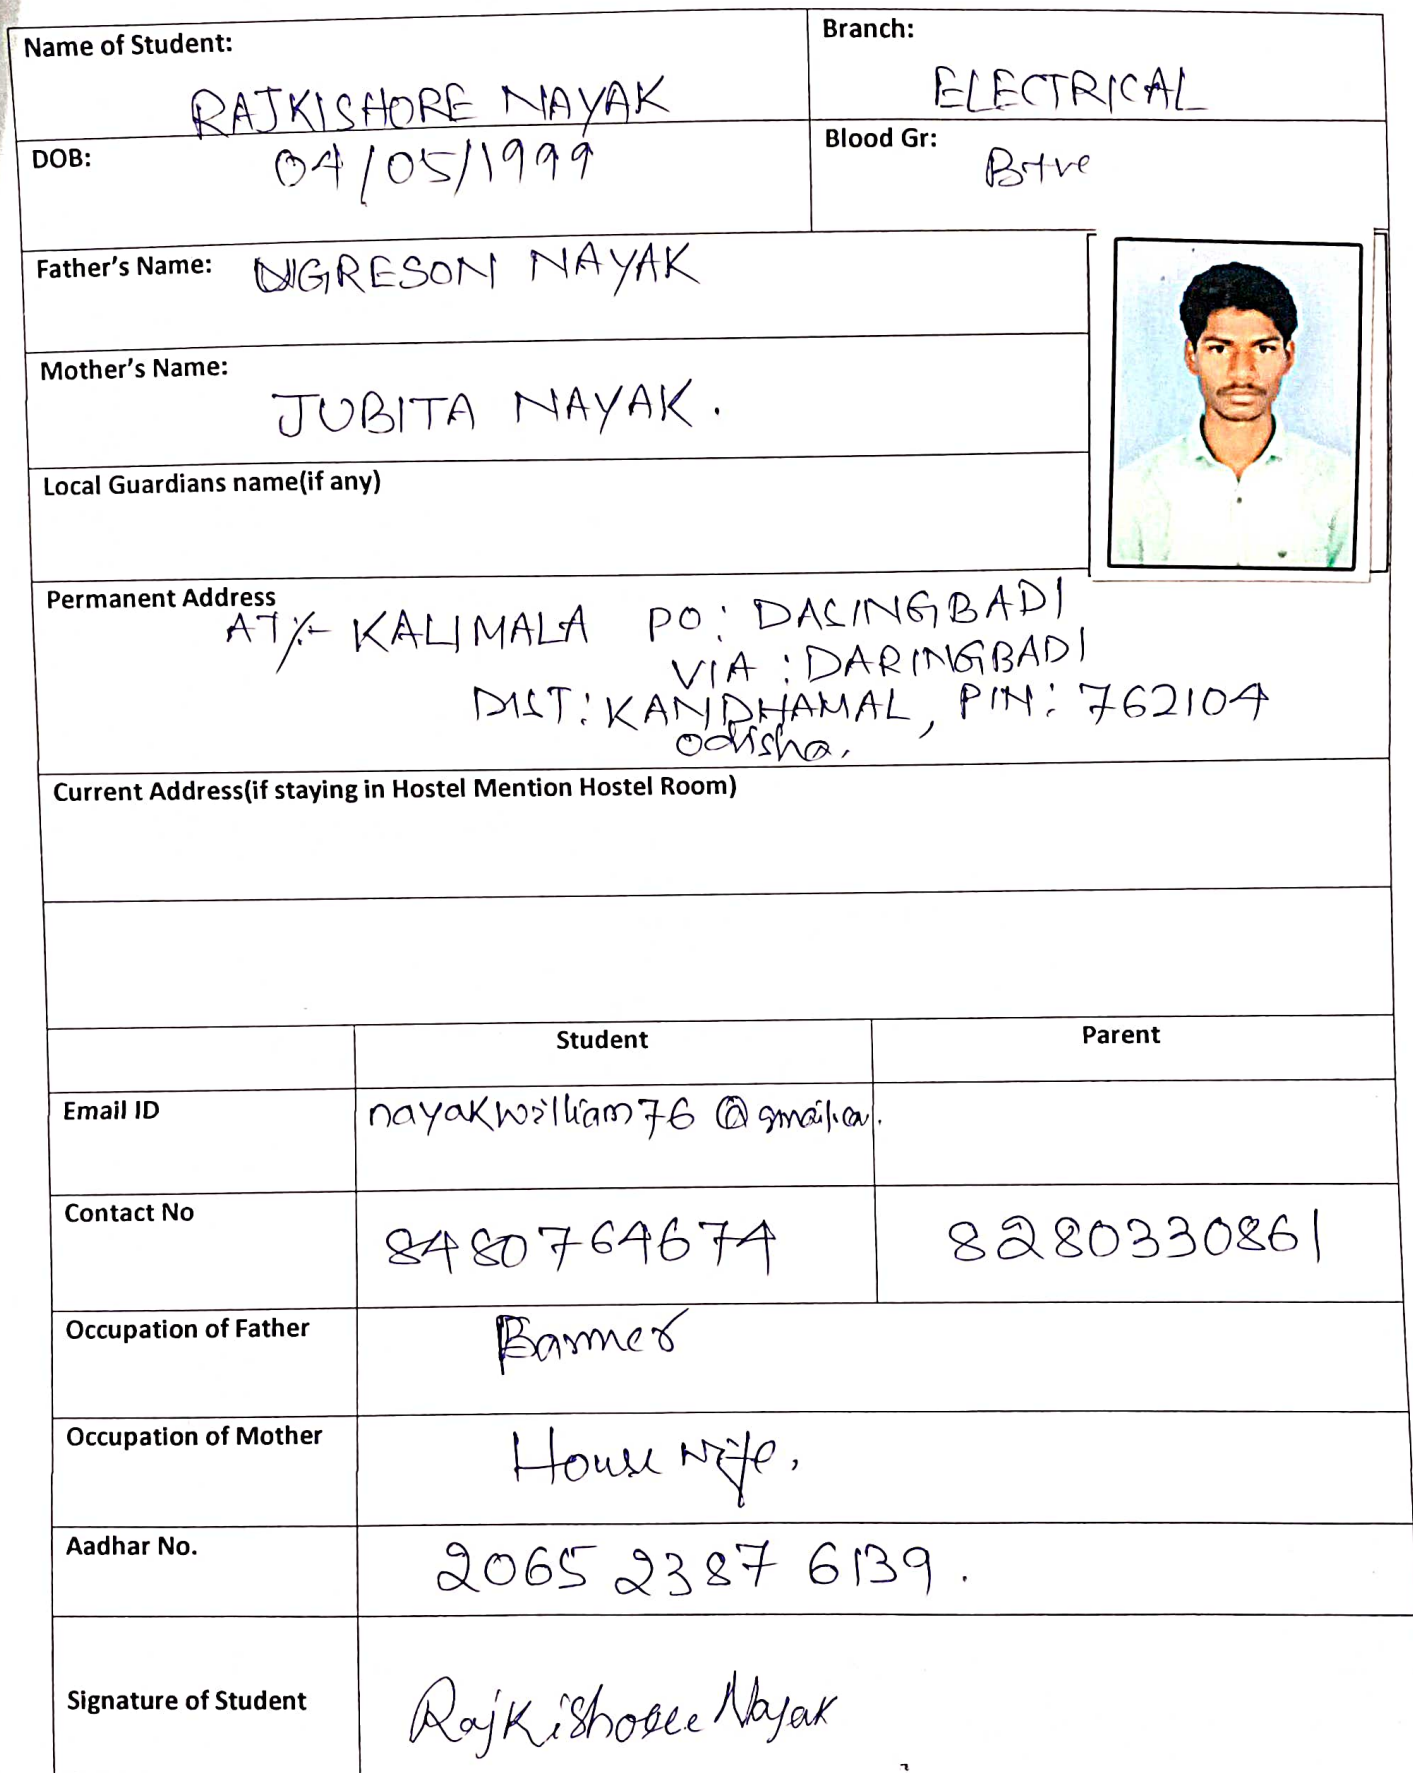 Name of Student:
RAJKISHORE NAYAK
Branch:
ELECTRICAL
DOB:
04/05/1999
Blood Gr:
B+ve
Father's Name: NGRESON NAYAK
Mother's Name:
JUBITA NAYAK.
Local Guardians name(if any)
Permanent Address
AT/- KALIMALA PO: DASINGBADI
VIA : DARINGBADI
DIST: KANDHAMAL, PIN: 762104
Odisha.
Current Address(if staying in Hostel Mention Hostel Room)
Student
Parent
Email ID
nayakwilliam76@gmail.com.
Contact No
8480764674
8280330861
Occupation of Father
Farmer
Occupation of Mother
House wife,
Aadhar No.
2065 2387 6139.
Signature of Student
RajKishore Nayak